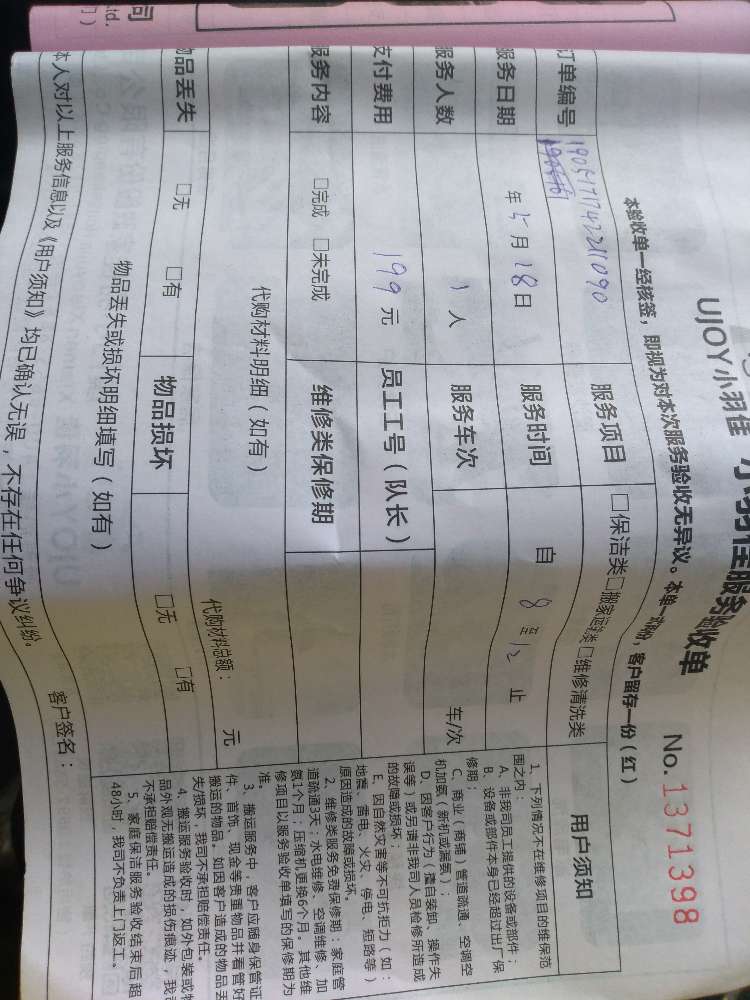 UJOY小羽佳 小羽佳服务验收单
No.1371398
本验收单一经核签，即视为对本次服务验收无异议。本单一式两份，客户留存一份（红）
订单编号 服务项目 □保洁类□搬家运输类□维修清洗类
服务日期 年 5 月 18 日 服务时间 自 8 至 12 止
服务人数 1 人 服务车次 车/次
支付费用 199 元 员工工号（队长）
服务内容 □完成 □未完成 维修类保修期
代购材料明细（如有）
代购材料总额： 元
物品丢失 □无 □有 物品损坏 □无 □有
物品丢失或损坏明细填写（如有）
本人对以上服务信息以及《用户须知》均已确认无误，不存在任何争议纠纷。
客户签名：
用户须知
1、下列情况不在维修项目的维保范
围之内：
A、非我司员工提供的设备或部件；
B、设备或部件本身已经超过出厂保
修期；
C、商业（商铺）管道疏通、空调空
机加氨（新机或漏氨）；
D、因客户行为（擅自装卸、操作失
误等）或另请非我司人员检修所造成
的故障或损坏；
E、因自然灾害等不可抗拒力（如：
地震、雷电、火灾、停电、短路等）
原因造成的故障或损坏。
2、维修类服务免费保修期：家庭管
道疏通3天；水电维修、空调维修、加
氨1个月；压缩机更换6个月。其他维
修项目以服务验收单填写的保修期为
准。
3、搬运服务中，客户应随身保管证
件、首饰、现金等贵重物品并看管好
搬运的物品。如因客户造成的物品丢
失/损坏，我司不承担赔偿责任。
4、搬运服务验收时，如外包装或物
品外观无搬运造成的损伤痕迹，我司
不承担赔偿责任。
5、家庭保洁服务验收结束后超
48小时，我司不负责上门返工。
司
td.